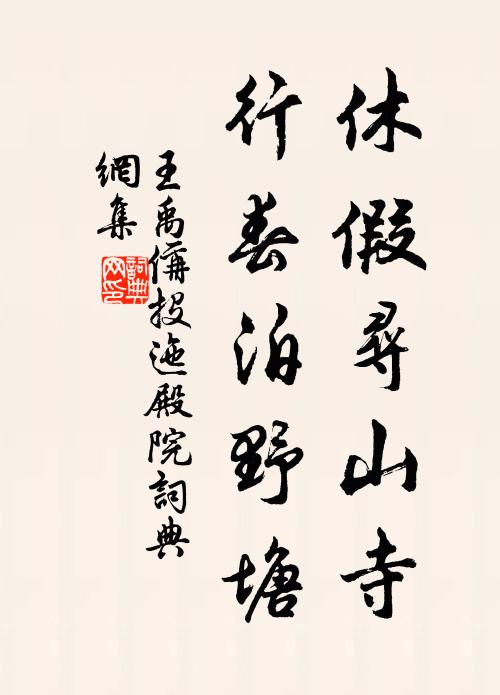 休假尋山寺
行春泊野塘
王禹偁投迤殿院詞典
網集
詞典
网印